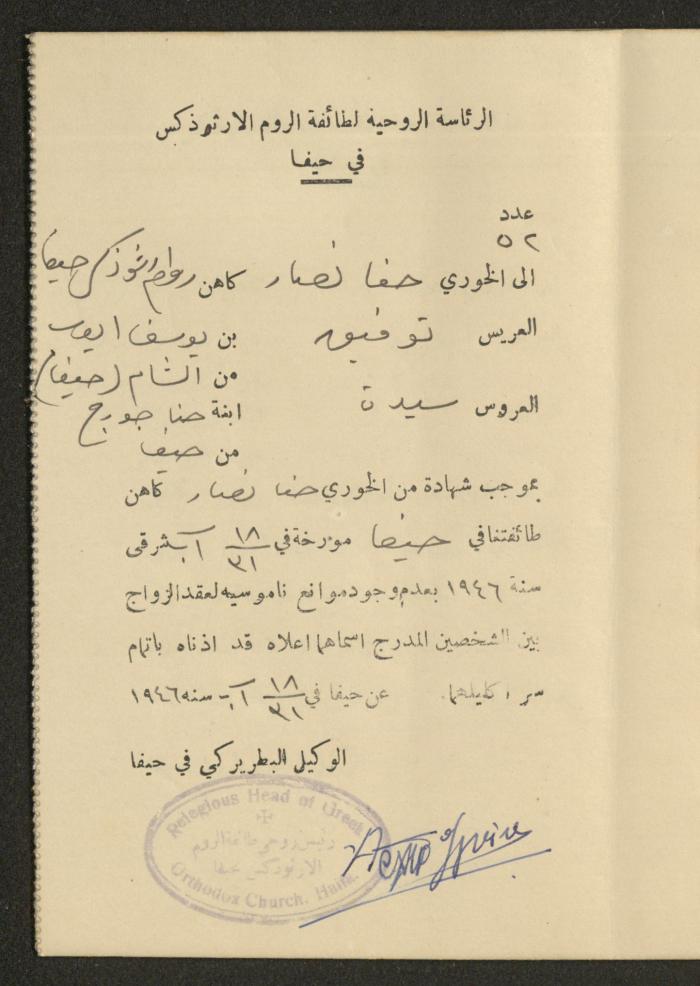 الرئاسة الروحية لطائفة الروم الارثوذكس
في حيفا
عدد
٥٢
الى الخوري حنا نصار كاهن روم ارثوذكس حيفا
العريس توفيق بن يوسف ايوب
من الشام (حيفا)
العروس سيدة ابنة حنا جورج
من حيفا
بموجب شهادة من الخوري حنا نصار كاهن
طائفتنا في حيفا مؤرخة في ١٨/٣١ آب شرقي
سنة ١٩٤٦ بعدم وجود موانع ناموسيه لعقد الزواج
بين الشخصين المدرج اسماهما اعلاه قد اذناه باتمام
سر اكليلهما. عن حيفا في ١٨/٣١ آب سنه ١٩٤٦
الوكيل البطريركي في حيفا
Relegious Head of Greek
رئيس روحي طائفة الروم
الارثوذكس حيفا
Orthodox Church, Haifa.